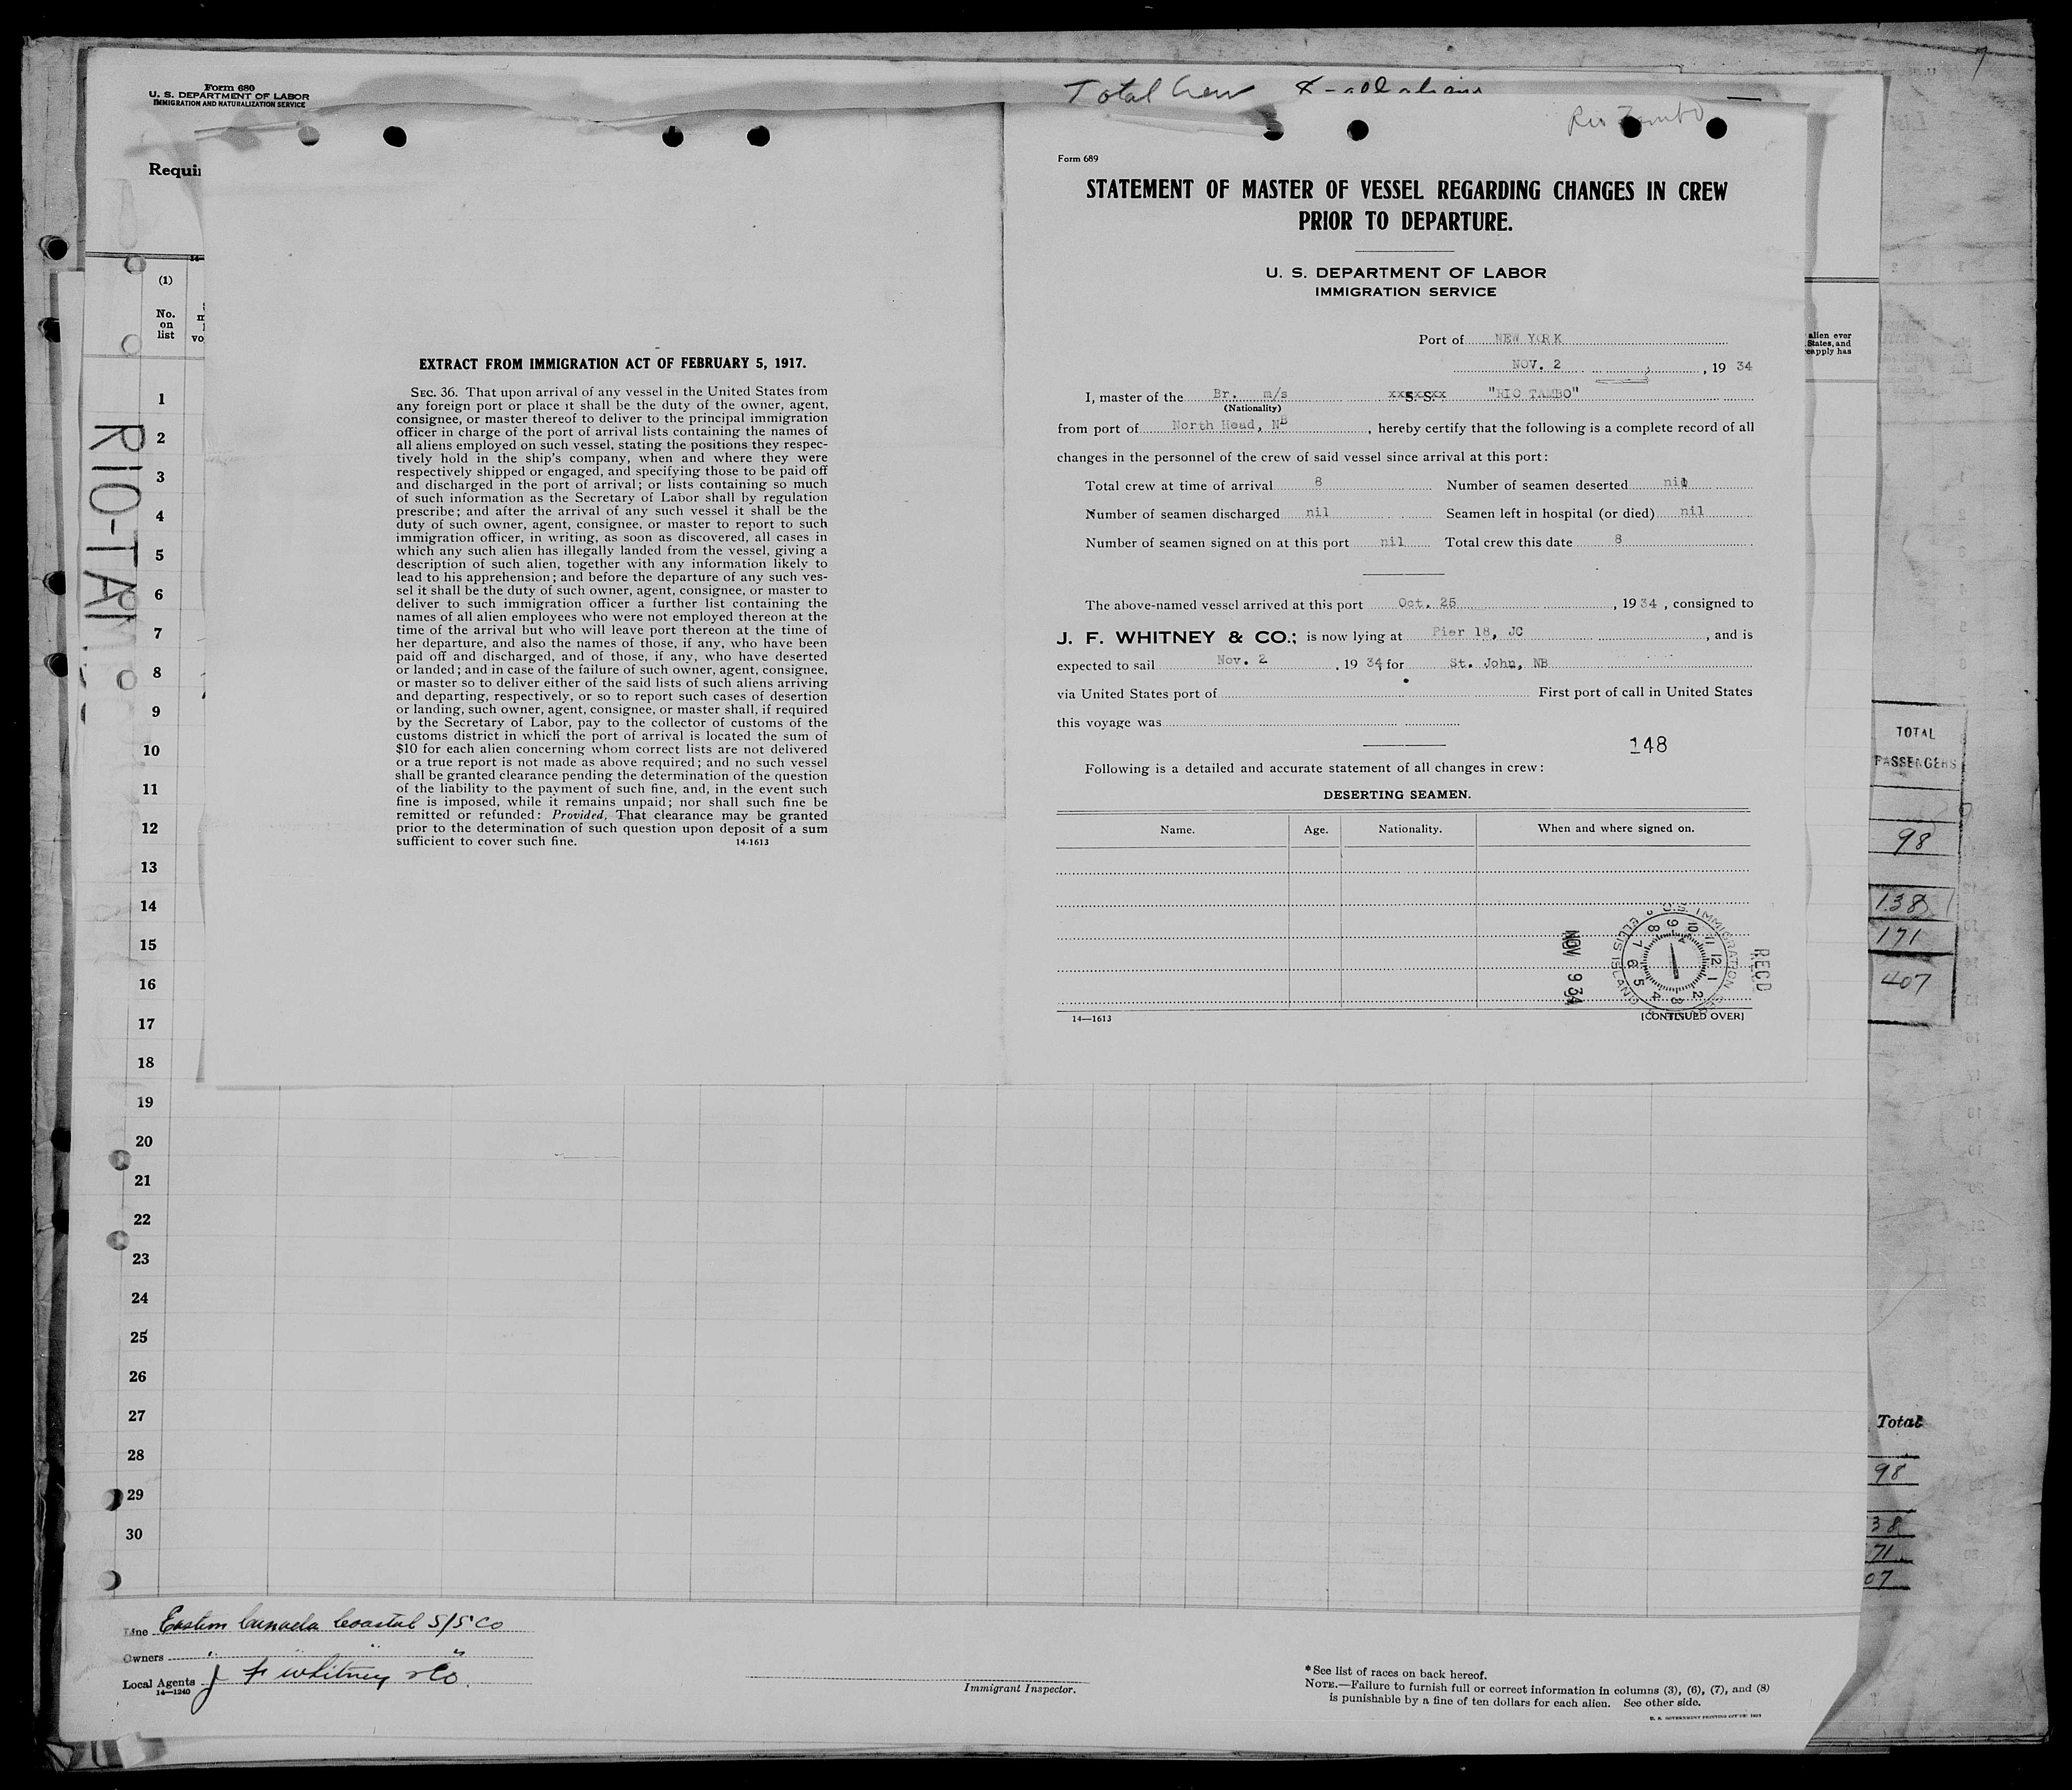 Form 680
U. S. DEPARTMENT OF LABOR
IMMIGRATION AND NATURALIZATION SERVICE
Total Crew 8 - all aliens
Rio Tambo
Requi
(1)
No.
on
list
vo
alien ever
States, and
reapply has
RIO-TAMBO
1
2
3
4
5
6
7
8
9
10
11
12
13
14
15
16
17
18
19
20
21
22
23
24
25
26
27
28
29
30
EXTRACT FROM IMMIGRATION ACT OF FEBRUARY 5, 1917.
SEC. 36. That upon arrival of any vessel in the United States from
any foreign port or place it shall be the duty of the owner, agent,
consignee, or master thereof to deliver to the principal immigration
officer in charge of the port of arrival lists containing the names of
all aliens employed on such vessel, stating the positions they respec-
tively hold in the ship's company, when and where they were
respectively shipped or engaged, and specifying those to be paid off
and discharged in the port of arrival; or lists containing so much
of such information as the Secretary of Labor shall by regulation
prescribe; and after the arrival of any such vessel it shall be the
duty of such owner, agent, consignee, or master to report to such
immigration officer, in writing, as soon as discovered, all cases in
which any such alien has illegally landed from the vessel, giving a
description of such alien, together with any information likely to
lead to his apprehension; and before the departure of any such ves-
sel it shall be the duty of such owner, agent, consignee, or master to
deliver to such immigration officer a further list containing the
names of all alien employees who were not employed thereon at the
time of the arrival but who will leave port thereon at the time of
her departure, and also the names of those, if any, who have been
paid off and discharged, and of those, if any, who have deserted
or landed; and in case of the failure of such owner, agent, consignee,
or master so to deliver either of the said lists of such aliens arriving
and departing, respectively, or so to report such cases of desertion
or landing, such owner, agent, consignee, or master shall, if required
by the Secretary of Labor, pay to the collector of customs of the
customs district in which the port of arrival is located the sum of
$10 for each alien concerning whom correct lists are not delivered
or a true report is not made as above required; and no such vessel
shall be granted clearance pending the determination of the question
of the liability to the payment of such fine, and, in the event such
fine is imposed, while it remains unpaid; nor shall such fine be
remitted or refunded: Provided, That clearance may be granted
prior to the determination of such question upon deposit of a sum
sufficient to cover such fine. 14-1613
Form 689
STATEMENT OF MASTER OF VESSEL REGARDING CHANGES IN CREW
PRIOR TO DEPARTURE.
U. S. DEPARTMENT OF LABOR
IMMIGRATION SERVICE
Port of NEW YORK
NOV. 2, 1934
I, master of the Br. m/s xxS.S.xx "RIO TAMBO"
(Nationality)
from port of North Head, NB, hereby certify that the following is a complete record of all
changes in the personnel of the crew of said vessel since arrival at this port:
Total crew at time of arrival 8 Number of seamen deserted nil
Number of seamen discharged nil Seamen left in hospital (or died) nil
Number of seamen signed on at this port nil Total crew this date 8
The above-named vessel arrived at this port Oct. 25, 1934, consigned to
J. F. WHITNEY & CO.; is now lying at Pier 18, JC, and is
expected to sail Nov. 2, 1934, for St. John, NB
via United States port of First port of call in United States
this voyage was
148
Following is a detailed and accurate statement of all changes in crew:
DESERTING SEAMEN.
Name. Age. Nationality. When and where signed on.
U.S. IMMIGRATION
ELLIS ISLAND
1 2 3 4 5 6 7 8 9 10 11 12
NOV 9 34
REC'D
14—1613
[CONTINUED OVER]
TOTAL
PASSENGERS
98
138
171
407
Total
98
38
71
07
Line Eastern Canada Coastal S/S Co
Owners " " "
Local Agents J F Whitney & Co.
14—1240
Immigrant Inspector.
*See list of races on back hereof.
NOTE.—Failure to furnish full or correct information in columns (3), (6), (7), and (8)
is punishable by a fine of ten dollars for each alien. See other side.